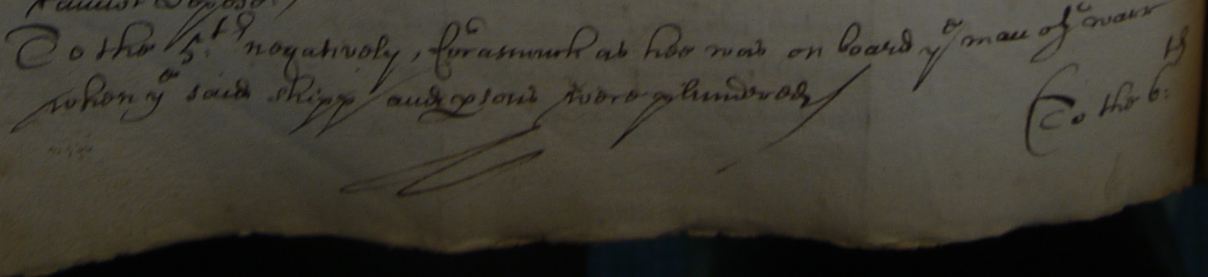 cannot depose./
To the 5.th negatively, forasmuch as hee was on board ye man of warr
when ye said shipp and psons were plundered/
To the 6: